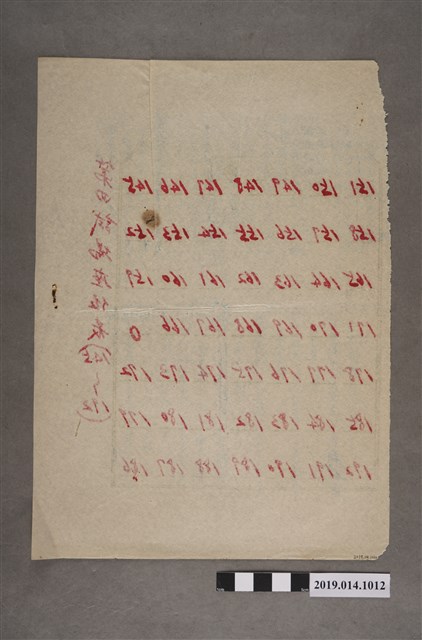 145 146 147 148 149 150 151
152 153 154 155 156 157 158
159 160 161 162 163 164 165
0 166 167 168 169 170 171
172 173 174 175 176 177 178
179 180 181 182 183 184 185
186 187 188 189 190 191 192
2019.014.1012